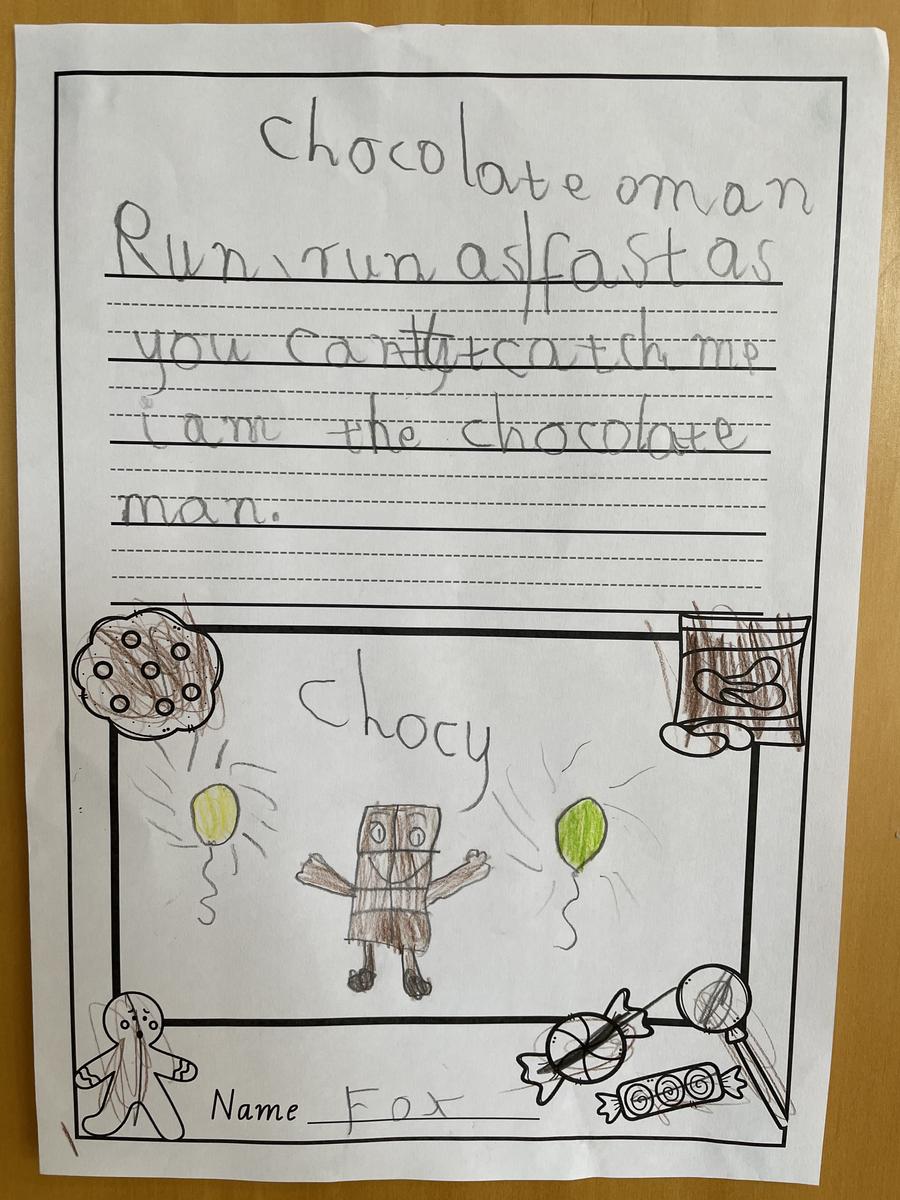 chocolate oman
Run, run as fast as
you can't catch me
i am the chocolate
man.
Chocy
Name Fox